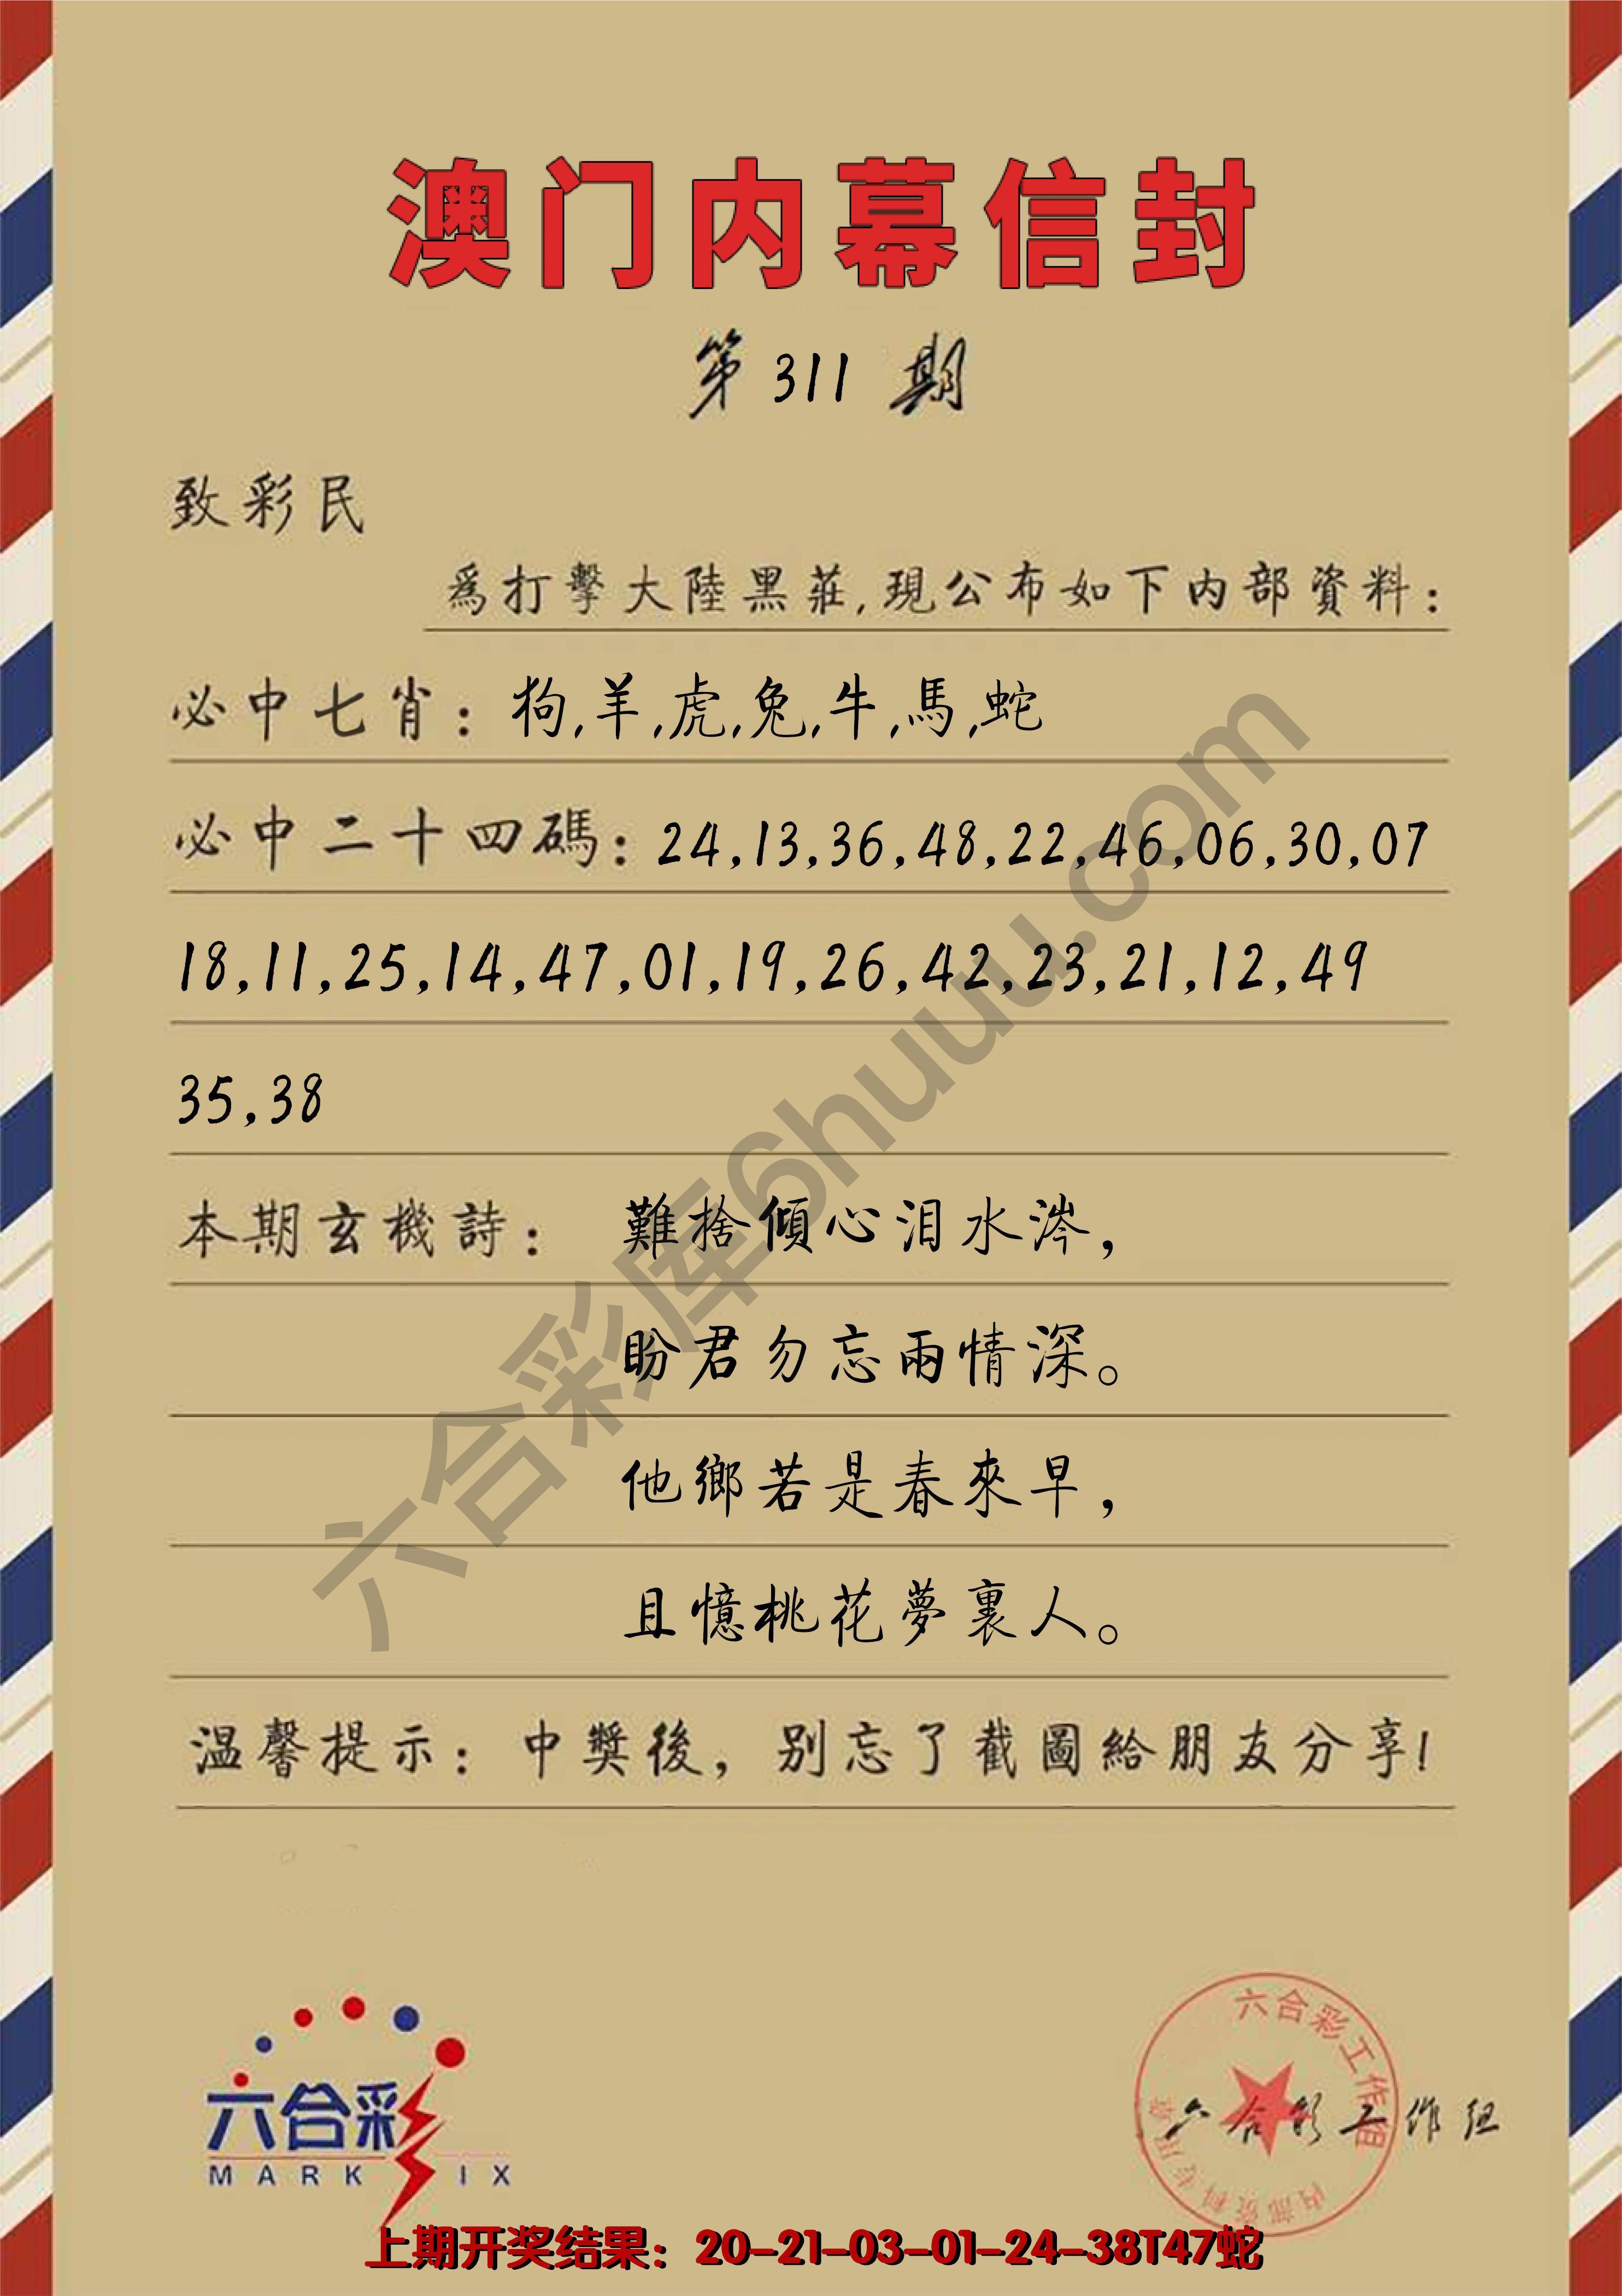 澳门内幕信封
第 311 期
致彩民
爲打擊大陸黑莊,現公布如下内部資料：
必中七肖：狗,羊,虎,兔,牛,馬,蛇
必中二十四碼：24,13,36,48,22,46,06,30,07
18,11,25,14,47,01,19,26,42,23,21,12,49
35,38
本期玄機詩：難捨傾心泪水涔，
盼君勿忘兩情深。
他鄉若是春來早，
且憶桃花夢裏人。
温馨提示：中獎後，别忘了截圖給朋友分享!
六合彩库6huuu.com
六合彩
MARK IX
六合彩工作组
内部资料专用章
六合彩工作组
上期开奖结果：20-21-03-01-24-38T47蛇